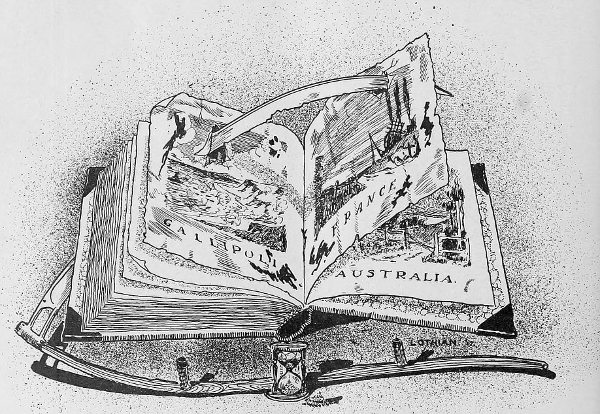 GALLIPOLI
FRANCE
AUSTRALIA.
LOTHIAN